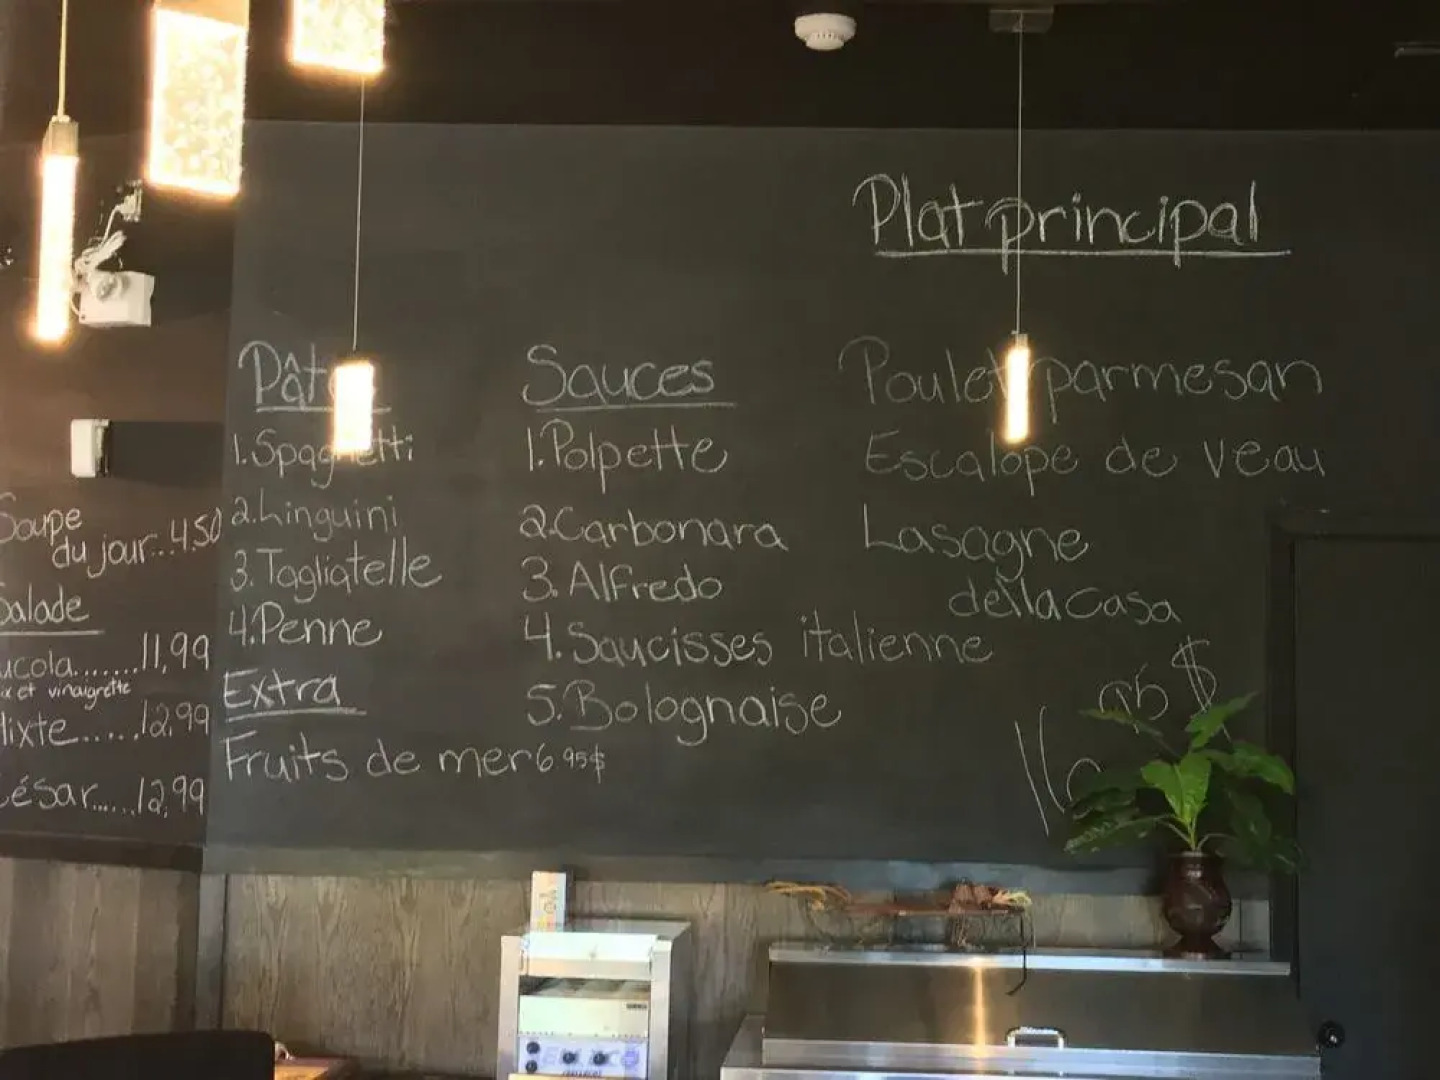 Plat principal
Soupe
du jour...4.50
Salade
11,99
et vinaigrette
12,99
César......12,99
Pâtes
1.Spaghetti
2.Linguini
3.Tagliatelle
4.Penne
Extra
Fruits de mer 6 95$
Sauces
1.Polpette
2.Carbonara
3.Alfredo
4.Saucisses italienne
5.Bolognaise
Poulet parmesan
Escalope de veau
Lasagne
della casa
16 95 $